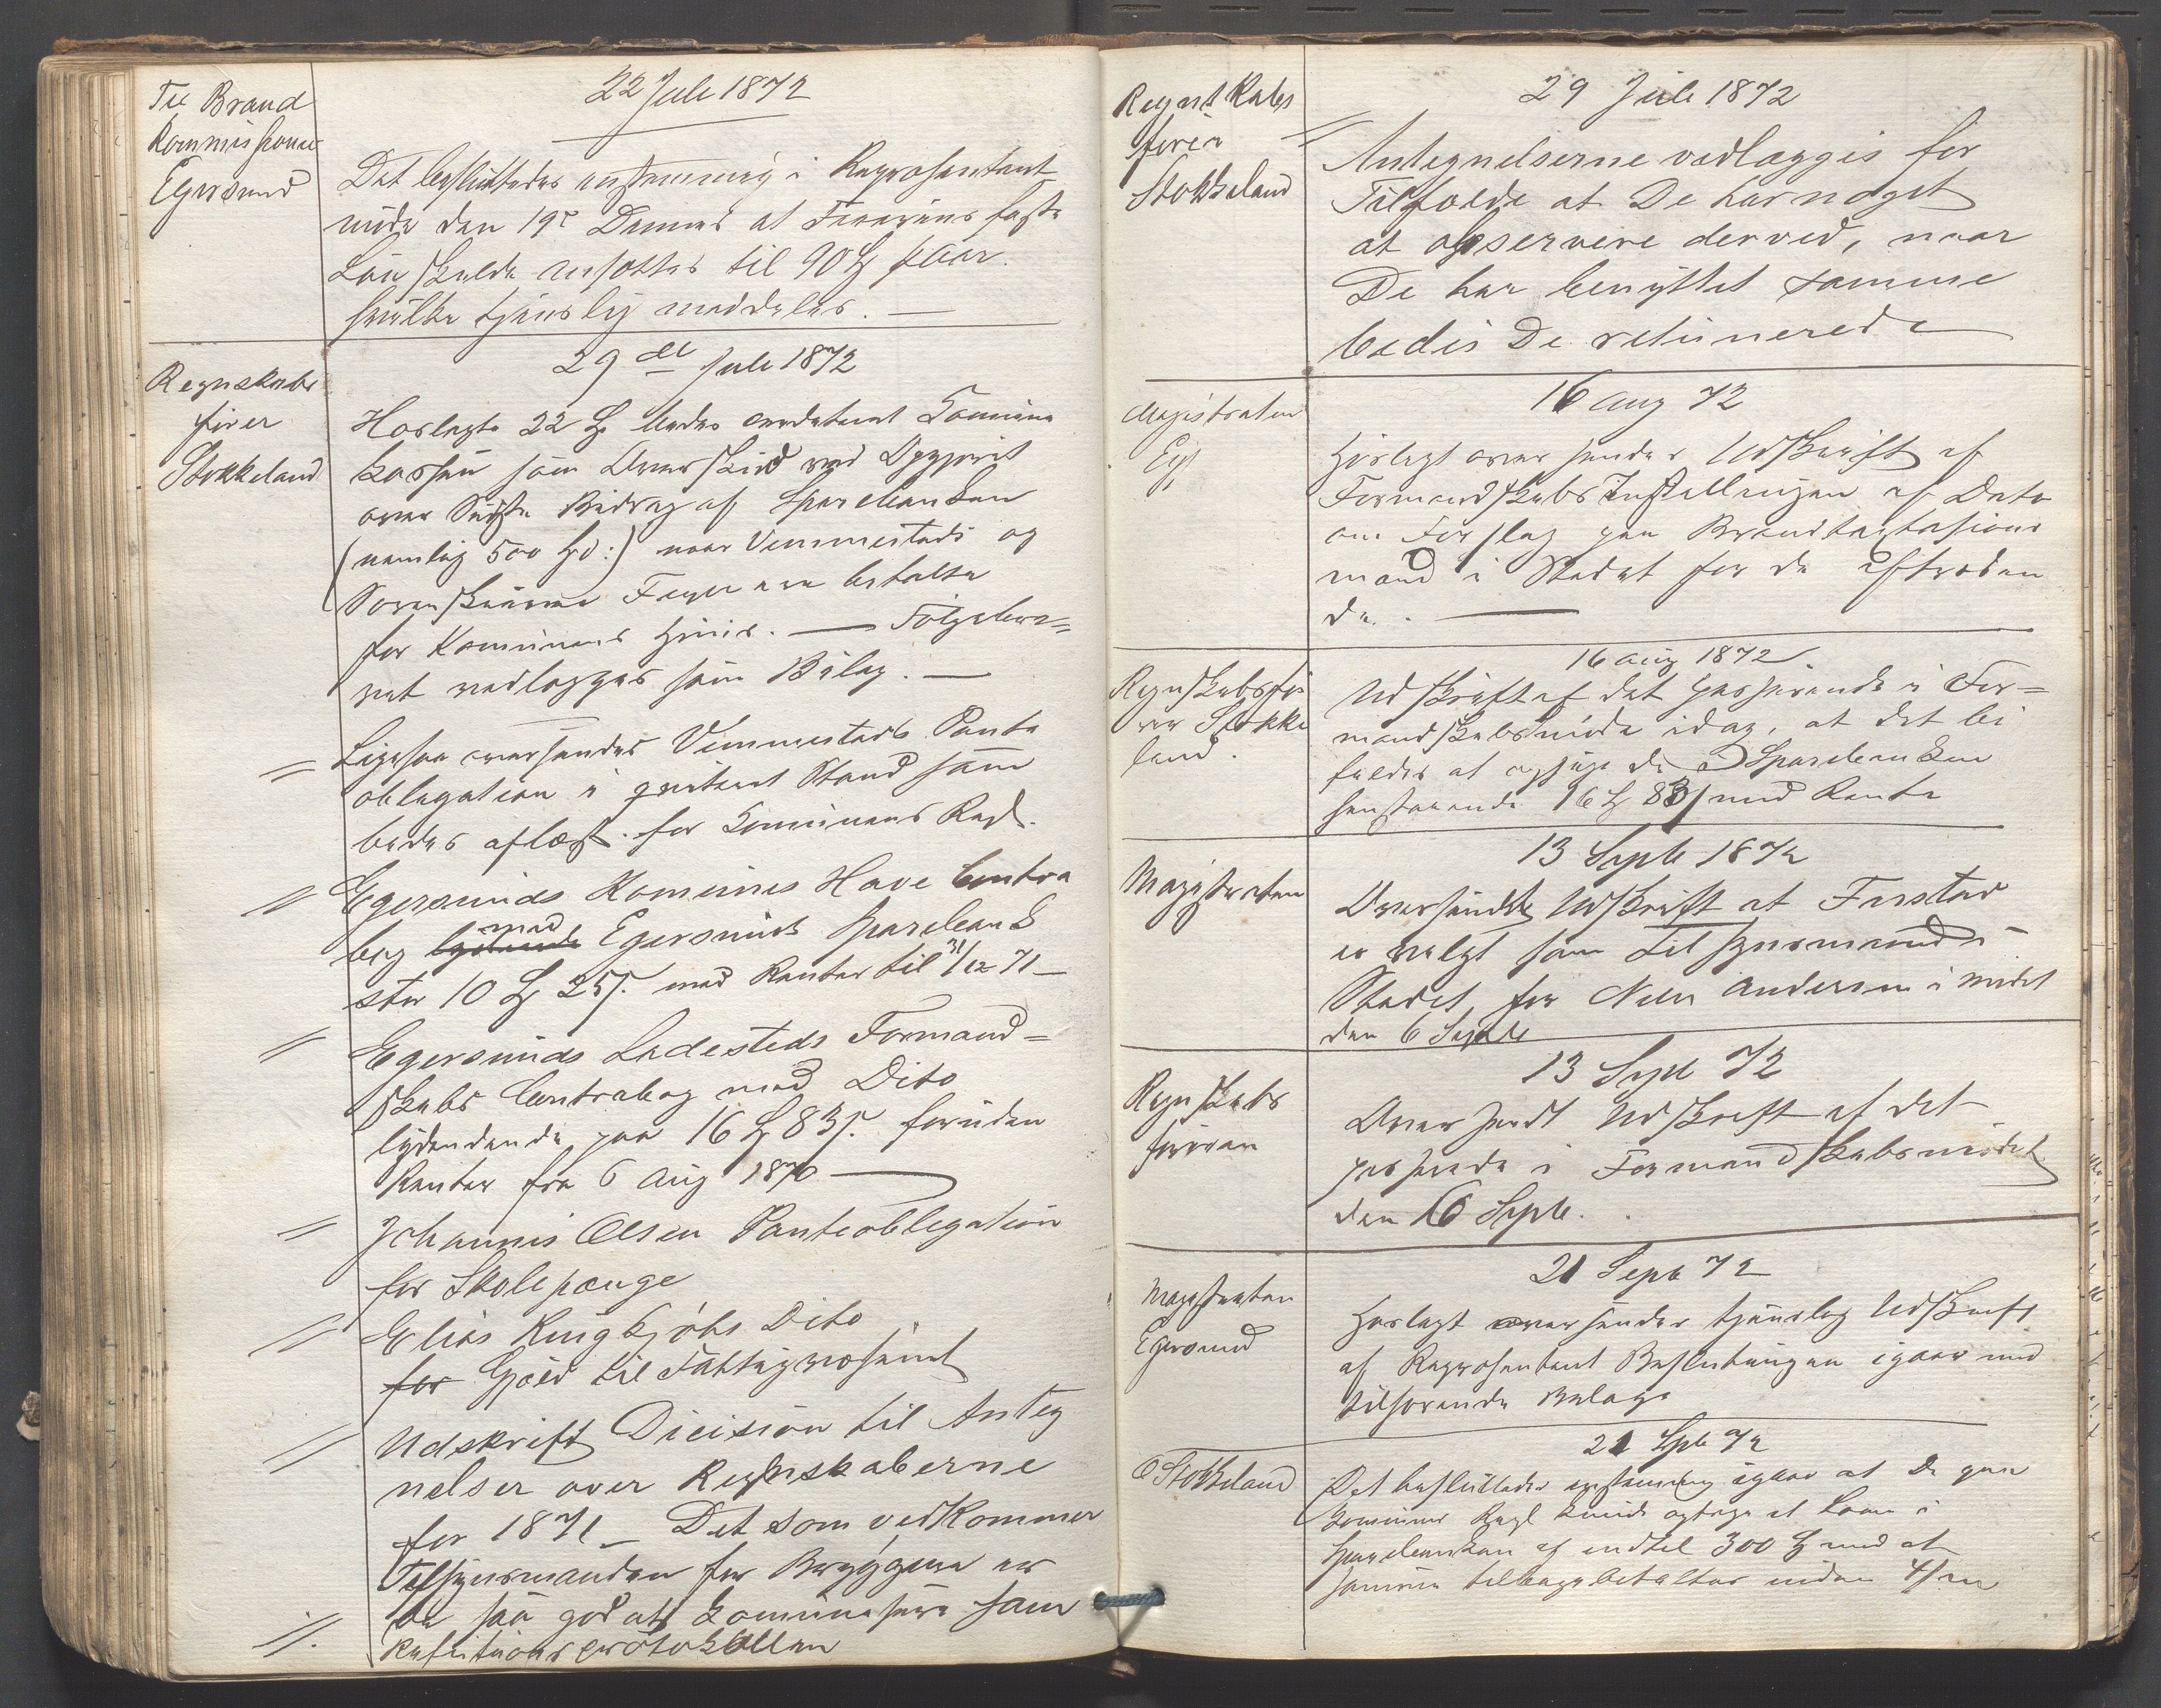 Til Brand
Kommissionen
Egersund
22 Juli 1872
Det besluttedes enstemmig i Repræsentant
møde den 19de Dennes at Feierens faste
Løn skulde ansættes til 90 Spd pr Aar.
hvilket tjenstlig meddeles. —
Regnskabs
fører
Stokkeland
29de Juli 1872
Hoslagte 22 Spd bedes Commune
kassen som Overskud ved
over Bidrag af Sparebanken
(nemlig 500 Spd:) naar Vemmestads og
Sorenskriver Feyer ere betalte
for Komunens Huus. — Følgebre=
vet vedlægges som Bilag. —
= Ligesaa oversendes Vemmestads Pante
obligation i qvitteret Stand som
bedes aflæst for Communens Regl.
// Egersunds Komunes Have Contra
bog lydende med Egersunds Sparebank
stor 10 Spd 25 s. med Renter til 31/12 71 —
// Egersunds Ladesteds Formand=
skabs Contrabog med Dito
lydendende paa 16 Spd 83 s. foruden
Renter fra 6 Aug 1870 —
// Johannis Olsen Panteobligation
for Skolepenge
// Elias Ringkjøbs Dito
for Gjæld til Fattigvæsenet
// Udskrift Dicision til Anteg
nelser over Regnskaberne
for 1871 — Det som vedkommer
Tilsynsmanden for Bryggerne er
De saa god at som
//. protokollen
Regnskabs
fører
Stokkeland
29 Juli 1872
// Antegnelserne vedlægges for
Tilfælde at De har noget
at observere derved, naar
De har benyttet samme
bedes De retunerede
Magistraten
Egs
16 Aug 72
Hoslagt oversendes Udskrift af
Formandskabs Indstillingen af Dato
om Forslag paa Brandtaxtations
mand i Stedet for de aftræden
de. —
Regnskabsfø
rer Stokke
land.
16 Aug 1872
Udskrift af det passerende i For=
mandskabsmøde idag, at det be
faldes at opsige de i Sparebanken
henstaaende 16 Spd 83 s med Rente
Magistraten
13 Septb 1872
Oversendte Udskrift at Firstad
er valgt som Tilsynsmand i
Stedet for Nils Andersen i Mødet
den 6 Septb
Regnskabs
føreren
13 Sept 72
Oversendt Udskrift af det
passerede i Formandskabsmødet
den 6 Septb.
Magistraten
Egersund
21 Septb 72
Hoslagt oversendes tjenstlig Udskrift
af Repræsentant Beslutningen igaar med
tilhørende Bilage
O Stokkeland
21 Septb 72
Det besluttedes enstemmig igaar at De paa
Communens Regl kunde optage et Laan i
Sparebanken af indtil 300 Spd mod at
samme tilbagebetales inden